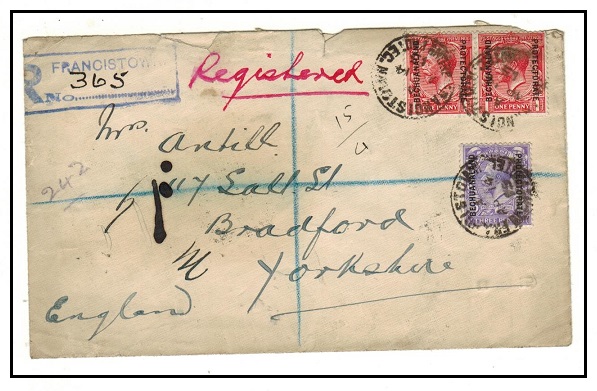 R FRANCISTOWN
No. 365
Registered
BECHUANALAND PROTECTORATE
ONE PENNY
BECHUANALAND PROTECTORATE
ONE PENNY
BECHUANALAND PROTECTORATE
THREE PENCE
15/4
242
Mrs. Antill
117 Salt St
Bradford
Yorkshire
England